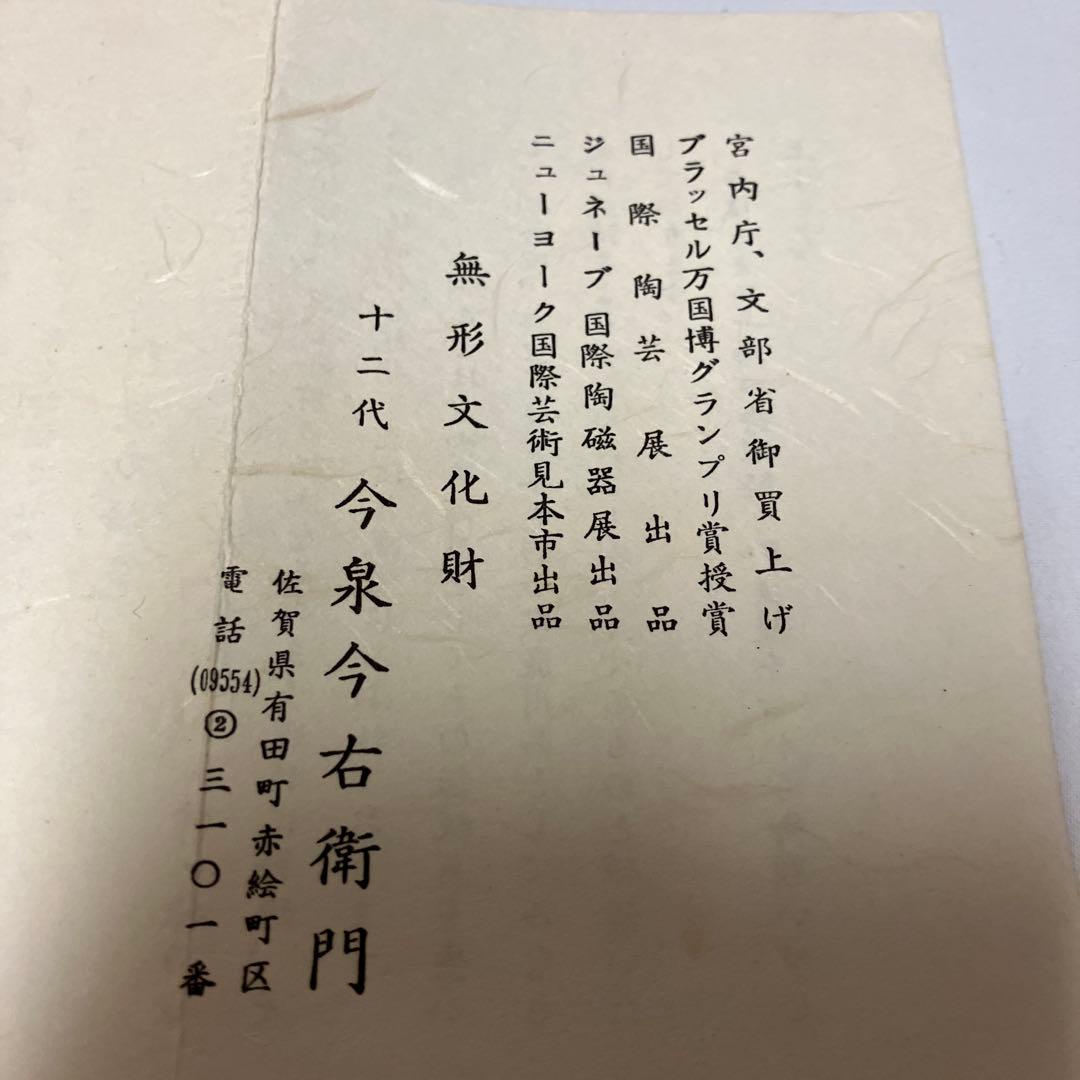 宮内庁、文部省御買上げ
ブラッセル万国博グランプリ賞授賞
国際陶芸展出品
ジュネーブ国際陶磁器展出品
ニューヨーク国際芸術見本市出品
無形文化財
十二代 今泉今右衛門
佐賀県有田町赤絵町区
電話(09554)②三一〇一番